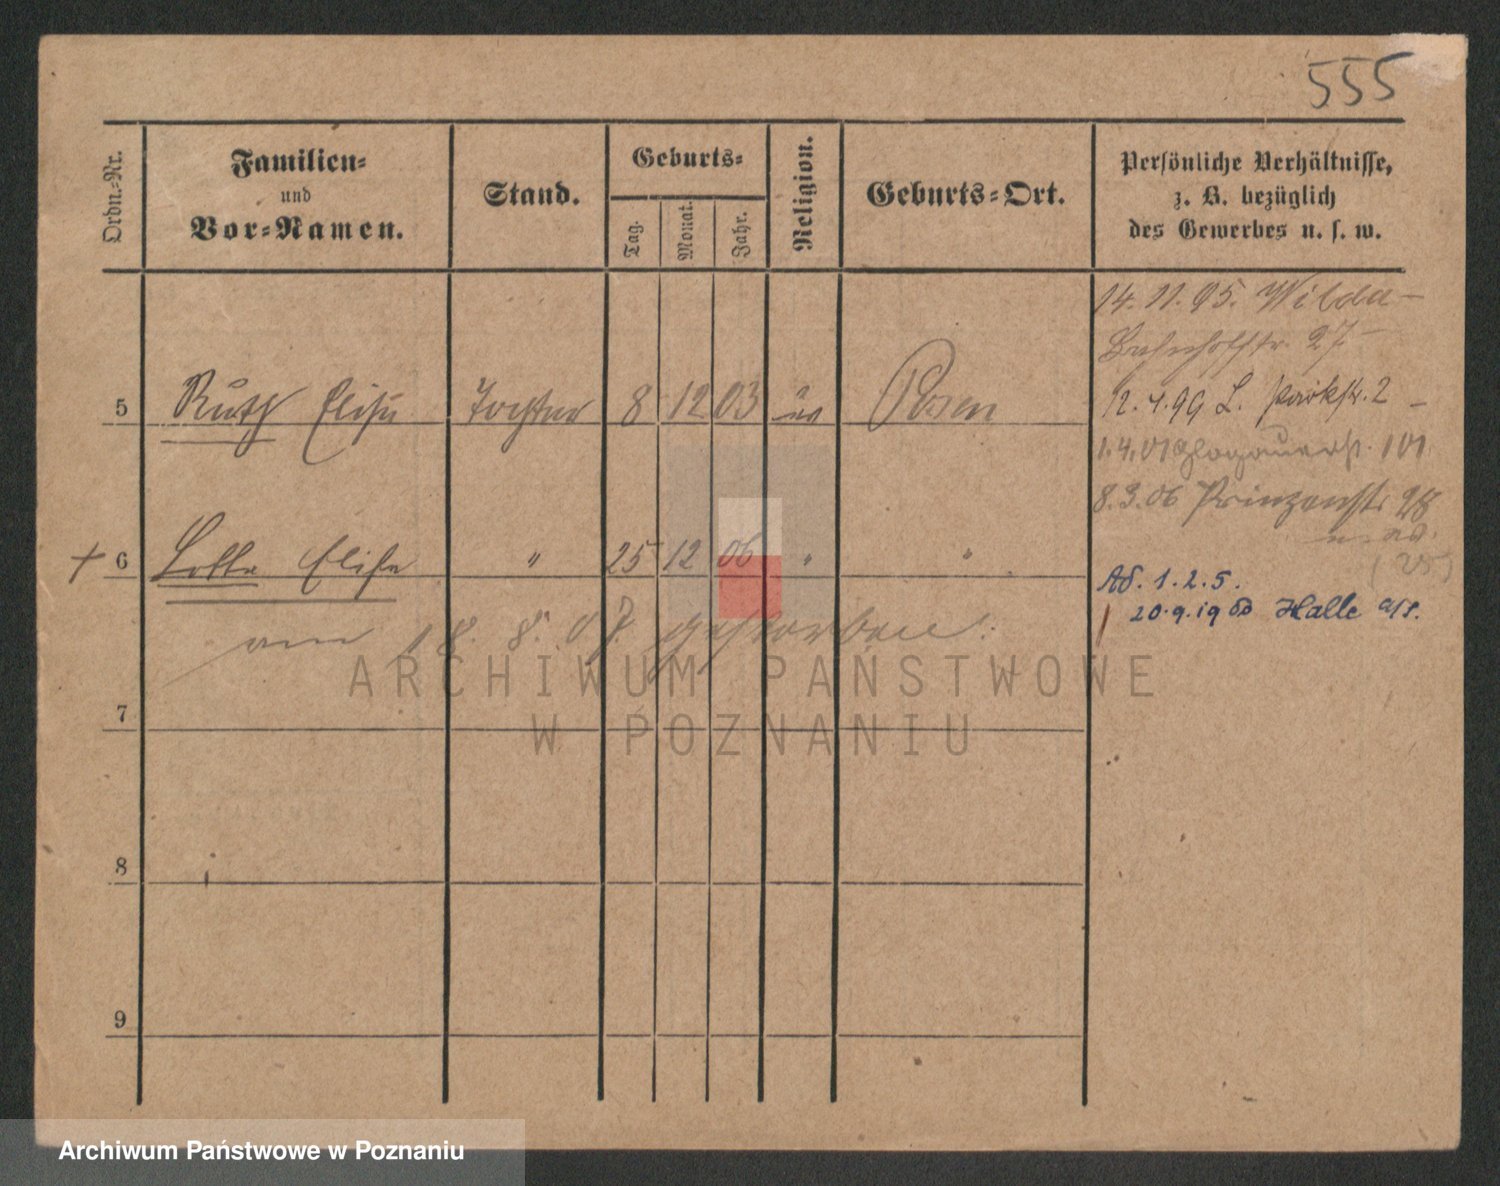 555
Ordn.-Nr.
Familien-
und
Vor-Namen.
Stand.
Geburts-
Tag.
Monat.
Jahr.
Religion.
Geburts-Ort.
Persönliche Verhältnisse,
z. B. bezüglich
des Gewerbes u. s. w.
14. 11. 95. Wilda
Bahnhofstr. 27
5 Ruth Elise Tochter 8 12 03 ev Posen
12. 4. 99 L. Parkstr. 2
1. 4. 01 Glogauerst. 101
8. 3. 06 Prinzenstr. 28
+ 6 Lotte Elise " 25 12 06 " "
Ab. 1. 2. 5.
20. 9. 19 Halle a/S.
am 18. 8. 07. gestorben.
7
8
9
ARCHIWUM PAŃSTWOWE
W POZNANIU
Archiwum Państwowe w Poznaniu